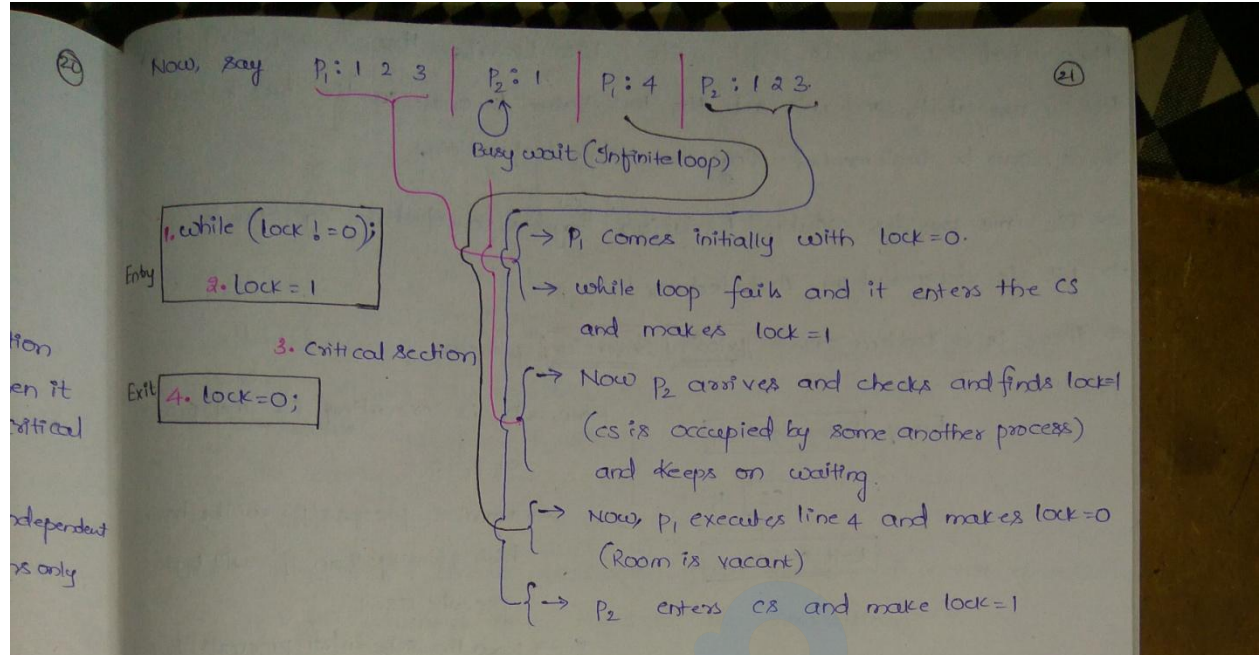 20
21
Now, say P1: 1 2 3 | P2: 1 | P1: 4 | P2: 1 2 3.
Busy wait (Infinite loop)
1. while (lock != 0);
Entry
2. Lock = 1
3. Critical section
Exit
4. lock=0;
→ P1 comes initially with lock=0.
→ while loop fails and it enters the CS
and makes lock=1
→ Now P2 arrives and checks and finds lock=1
(cs is occupied by some another process)
and keeps on waiting.
→ Now, P1 executes line 4 and makes lock=0
(Room is vacant)
→ P2 enters cs and make lock=1
tion
en it
ritical
ndependent
rs only